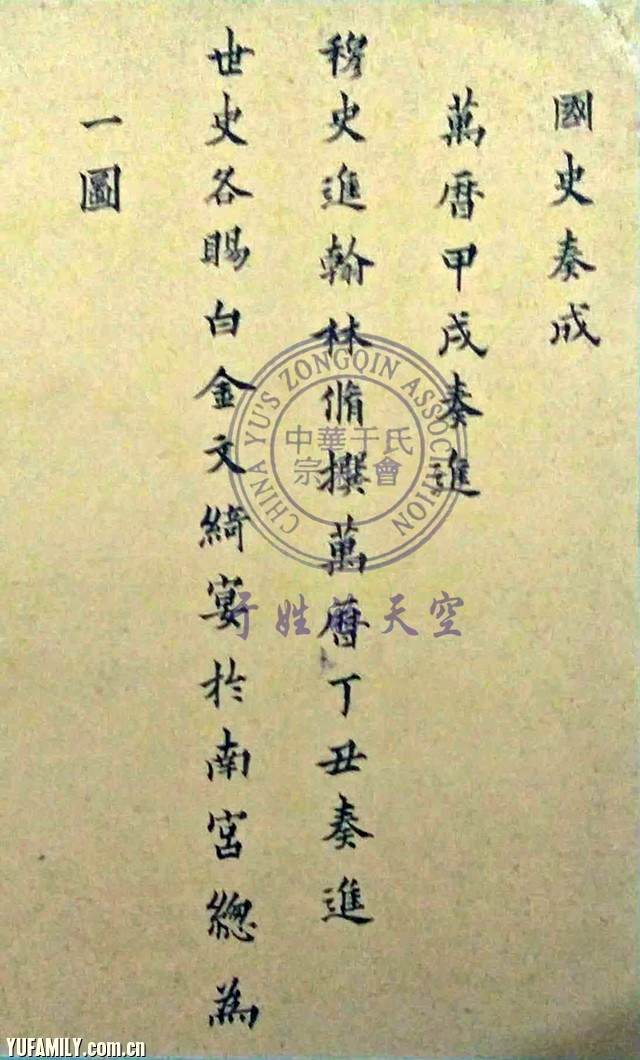 國史奏成
萬曆甲戌奏進
穆史進翰林脩撰萬曆丁丑奏進
世史各賜白金文綺宴於南宮總為
一圖
CHINA YU'S ZONGQIN ASSOCIATION
中華于氏
宗親會
于姓蓝天空
YUFAMILY.com.cn